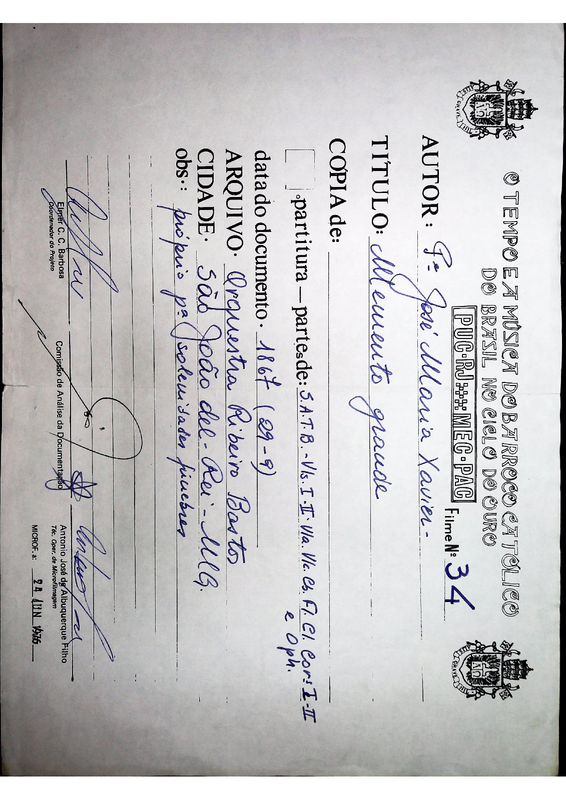 O TEMPO E A MÚSICA DO BARROCO CATÓLICO
DO BRASIL NO CICLO DO OURO
PUC·RJ MEC·PAC
Filme Nº 34
AUTOR: Pe José Maria Xavier -
TÍTULO: Memento grande
COPIA de:
partitura — partes de: S.A.T.B. - Vls. I-II. Vla. Vlc. Cb. Fl. Cl. Cors I-II
e Oph.
data do documento · 1867 (29-9)
ARQUIVO · Orquestra Ribeiro Bastos
CIDADE · São João del-Rei - MG.
obs·: próprio pª solenidades fúnebres
Elmer C. C. Barbosa
Coordenador do Projeto
Comissão de Análise da Documentação
Antonio José de Albuquerque Filho
Téc. Oper. de Microfilmagem
MICROF. e: 24 JUN 1976